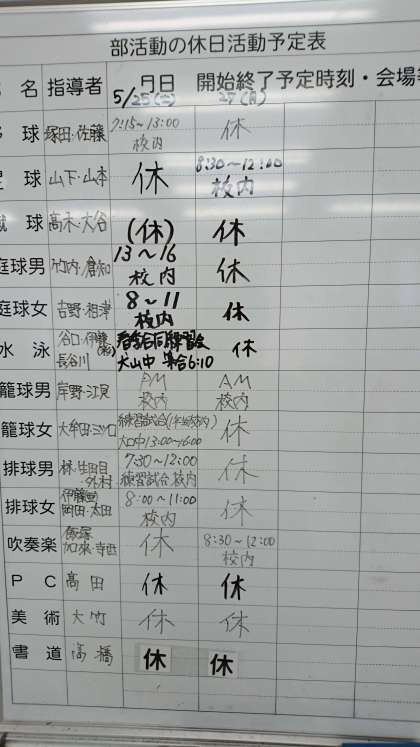 部活動の休日活動予定表
名 指導者 月日 開始終了予定時刻・会場等
5/25(土) 27(月)
球 塚田・佐藤 7:15~13:00 休
校内
球 山下・山本 休 8:30~12:00
校内
球 高木・大谷 (休) 休
庭球男 竹内・倉知 13~16 休
校内
庭球女 吉野・相津 8~11 休
校内
水泳 谷口・伊藤 合同練習会 休
長谷川 犬山中 集合6:10
籠球男 岸野・江見 AM AM
校内 校内
籠球女 大牟田・ 練習試合 休
大口中13:00~16:00
排球男 林・生田目 7:30~12:00 休
・外村 練習試合 校内
排球女 伊藤 8:00~11:00 休
岡田・太田 校内
吹奏楽 飯塚 休 8:30~12:00
加来・寺西 校内
PC 高田 休 休
美術 大竹 休 休
書道 高橋 休 休